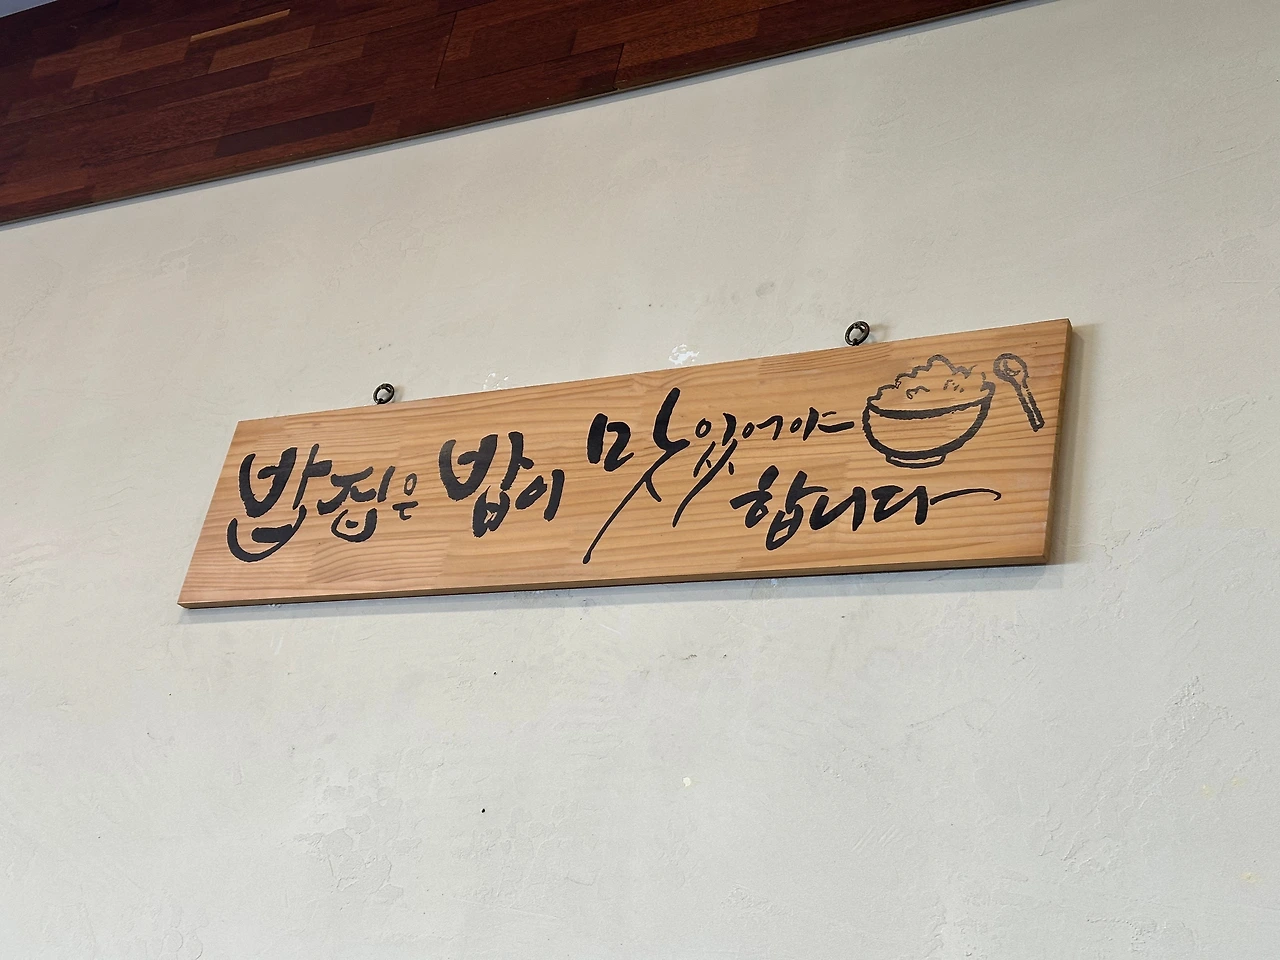 밥집은 밥이 맛있어야
합니다